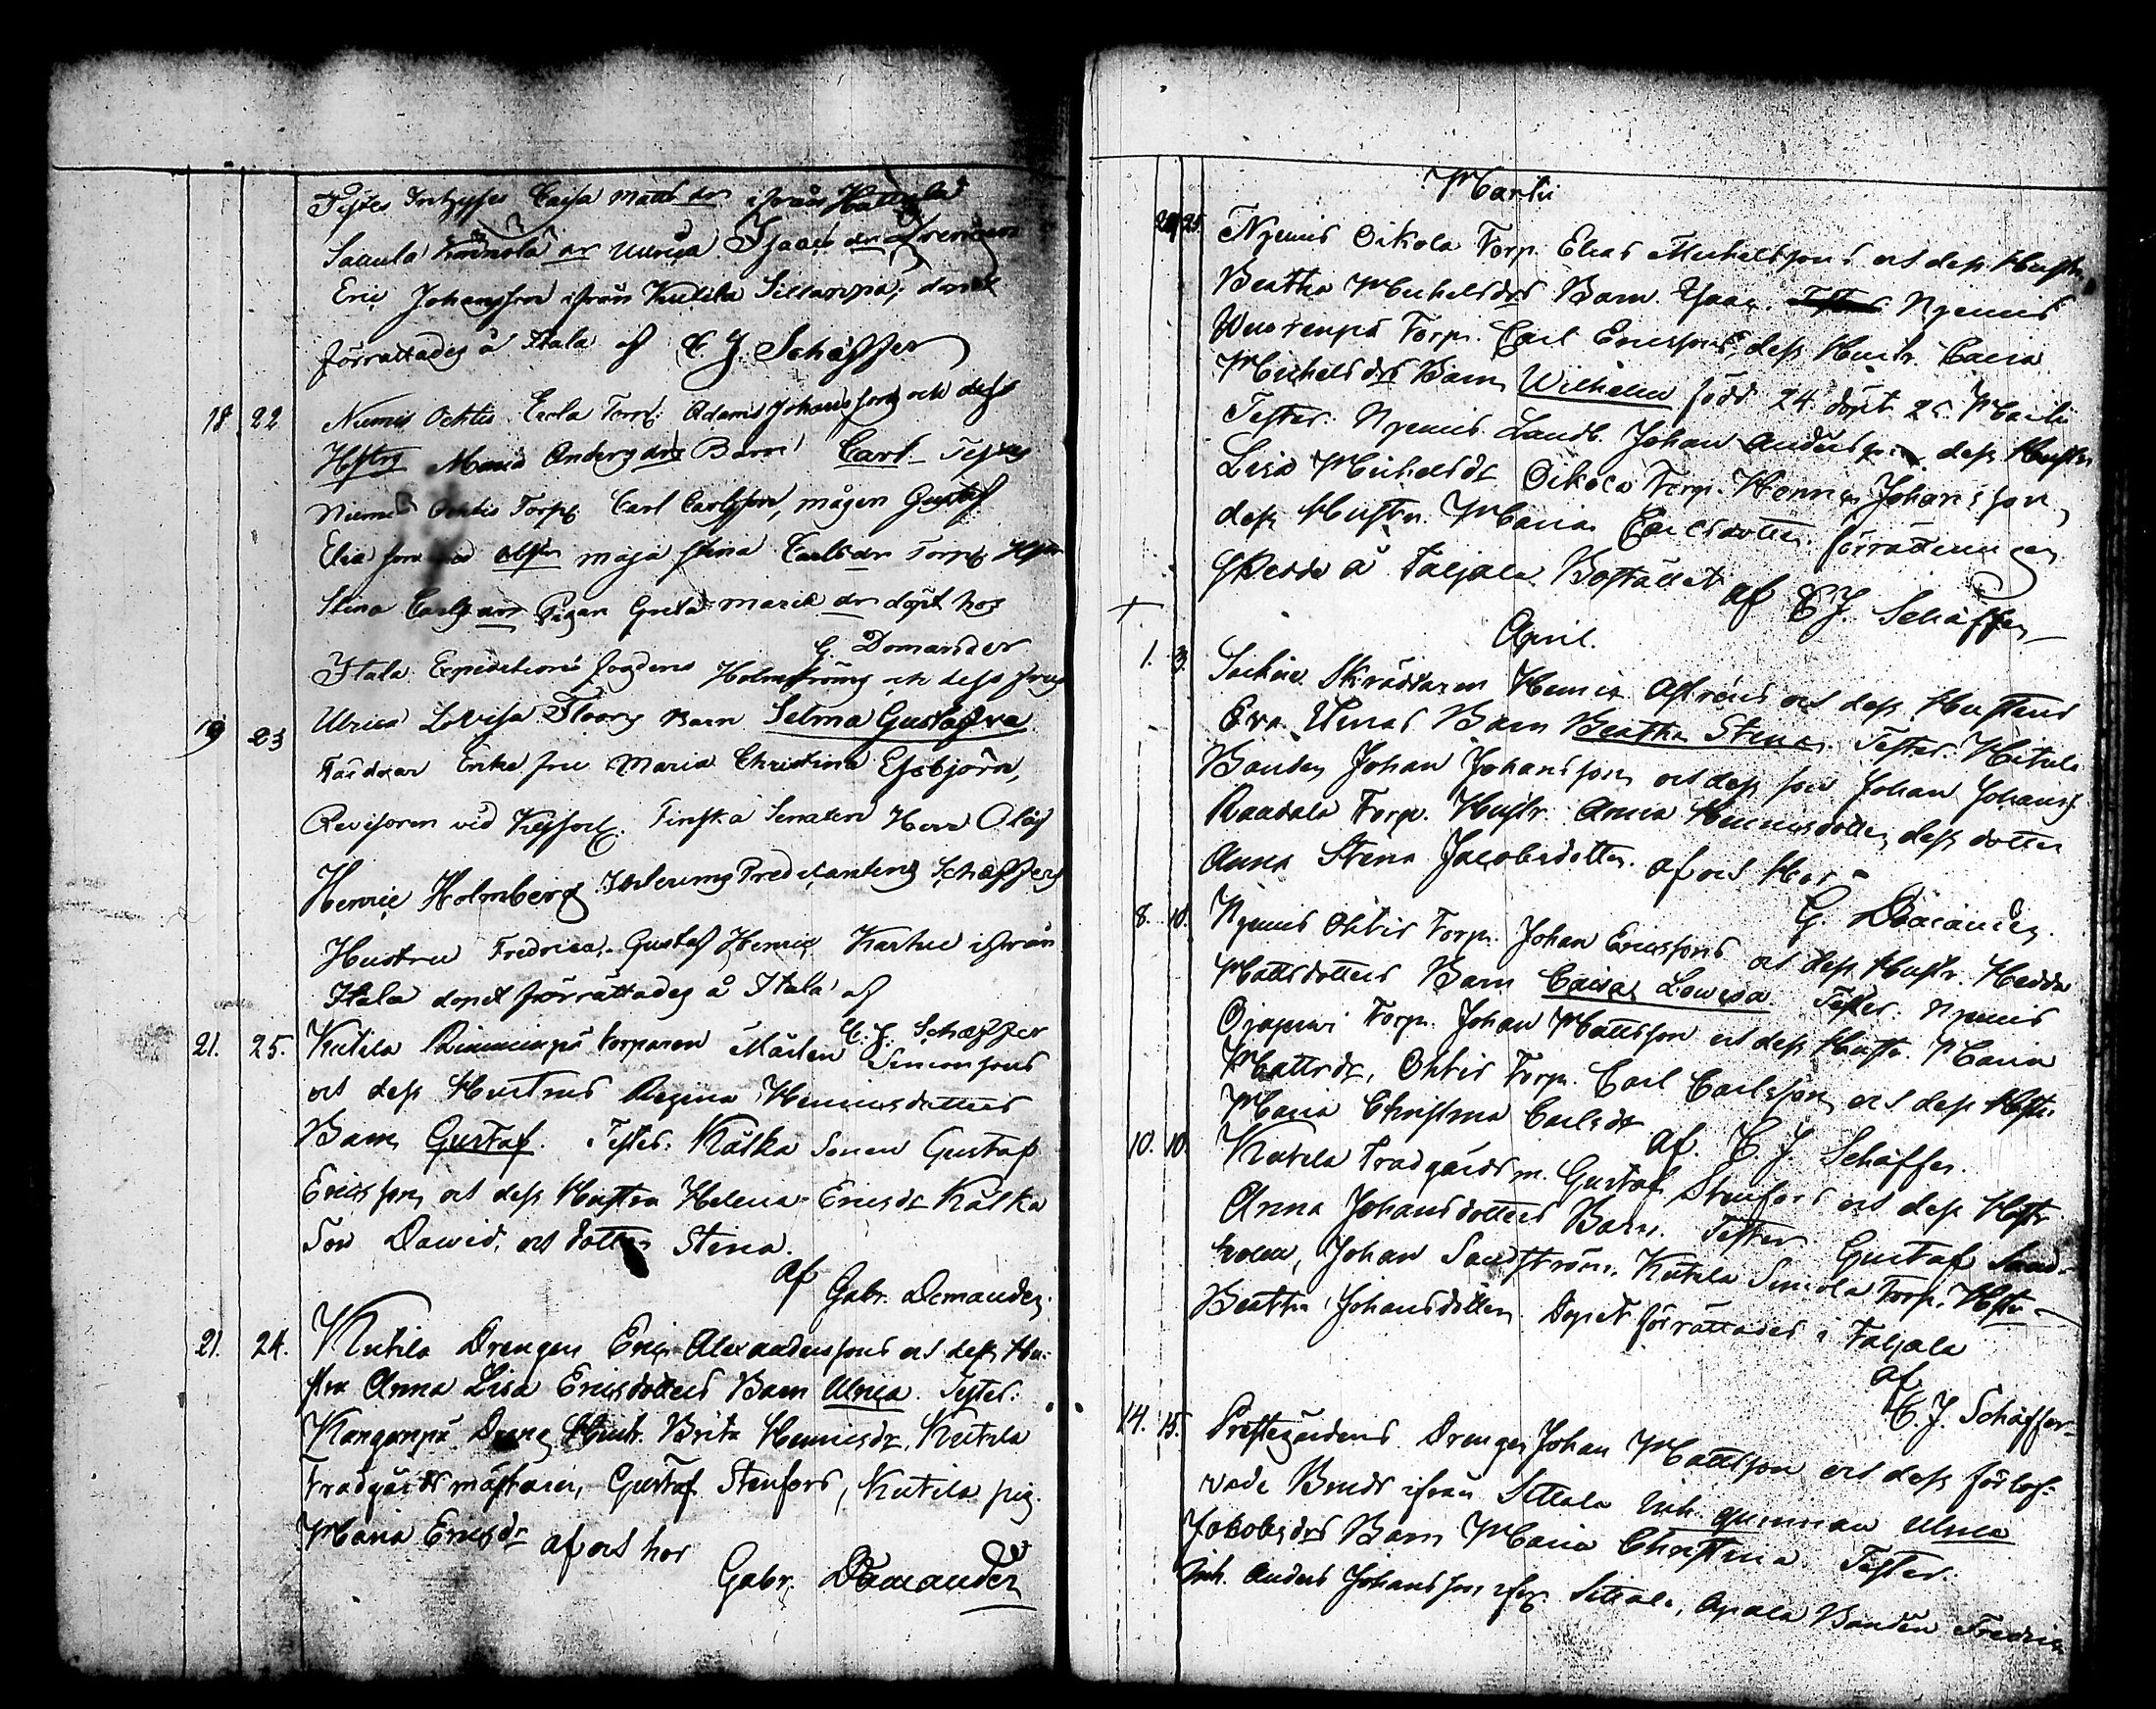 Testes Inhyses Caisa Matts dr ifrån Hattula
Saaula Ulrica Isaacs dr Drengen
Eric Johansson ifrån Kutila Sillanpää, dopet
förrättades å Itala af C. J. Schæffer
18 22 Niemis Ochtis Torp: Adams Johanssons och dess
Hustrus Maria Anders drs Barn Carl Testes
Niemis Ochtis Torp: Carl Carlsson, mågen Gustaf
Eliasson Maja Stina Carls dr Torp: Hust:
Stina Carls dr Pigan Greta Maria dr döpt hos
G Domander
Itala Expeditions fogdens Holmström och dess fru
19 23 Ulrica Lovisa Floor Barn Selma Gustafva
Faddrar Enke fru Maria Christina Essbjörn,
Revisoren vid Kejserl. Finska Senaten Herr Olof
Henric Holmberg Predicantens Schæffers
Hustru Fredrica, Gustaf Henric ifrån
Itala dopet förrättades å Itala af
C. J. Schæffer
21. 25. Kutila torparen Mårten Simonsons
och dess Hustrus Regina Henricsdotters
Barn Gustaf. Testes: Kålka Sonen Gustaf
Ericsson och dess Hustru Helena Ericsdr Kålka
Son David, och dotter Stina.
af
Gabr. Domander.
21. 24. Kutila Drengen Eric Alexanderssons och dess Hu-
stru Anna Lisa Ericsdotters Barn Ulrica. Testes:
Kanganpä Dreng Hustr. Brita Henricsdr, Kutila
Tradgårdsmästaren, Gustaf Stenfors, Kutila pig.
Maria Ericsdr af och hos
Gabr. Domander
Martii
24 25. Nyemis Oikola Torp. Elias Michelssons och dess Hustr.
Beatha Michelsdrs Barn Isaac. Nyemis
Torp. Carl Ericssons, dess Hustr. Caisa
Michelsdrs Barn Wilhelm född 24 döpt 25 Martii
Testes: Nyemis Landb. Johan Andersson dess Hustru
Lisa Michelsdr Oikola Torp. Henric Johansson
dess Hustru Maria Carlsdotter. förrättningen
skedde å Taljala Bostället af C. J. Schæffer
April.
1. 3. Skräddaren Henric och dess Hustrus
Eva Barn Beatha Stina. Testes:
Bonden Johan Johansson och dess son Johan Johanss
Torp. Hustr. Anna Henricsdotter, dess dotter
Anna Stina Jacobsdotter. af och hos
G. Domander.
8. 10. Nyemis Ohtis Torp. Johan Ericssons och dess Hustr. Hedda
Mattsdotters Barn Caisa Lowisa Testes: Nyemis
Torp. Johan Mattsson och dess Hustr. Maria
Mattsdr, Ohtis Torp. Carl Carlsson och dess Hustr.
Maria Christina Carlsdr
af. C. J. Schæffer.
10. 10. Kutila Tradgårdsm. Gustaf Stenfors och dess Hustr
Anna Johansdotters Barn. Testes Gustaf Sand-
Johan Sandström. Kutila Torp. Hustru
Beatha Johansdotter Dopet förrättades i Taljala
af
C. J. Schæffer
14. 15. Prestegårdens Drengen Johan Mattsson och dess förlof-
vade Brud ifrån Sittala Inh. qvinnan Ulrica
Jakobsdrs Barn Maria Christina Testes:
Inh. Anders Johansson ifrån Sittala, Bonden Fredric